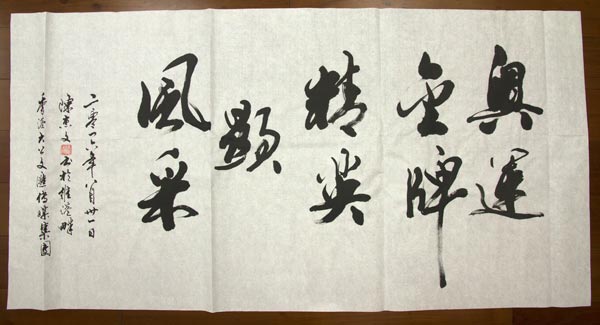 奥運
金牌
精英
顯
風采
二零一六年八月卅一日
陳東文書於維港畔
香港大公文匯傳媒集團